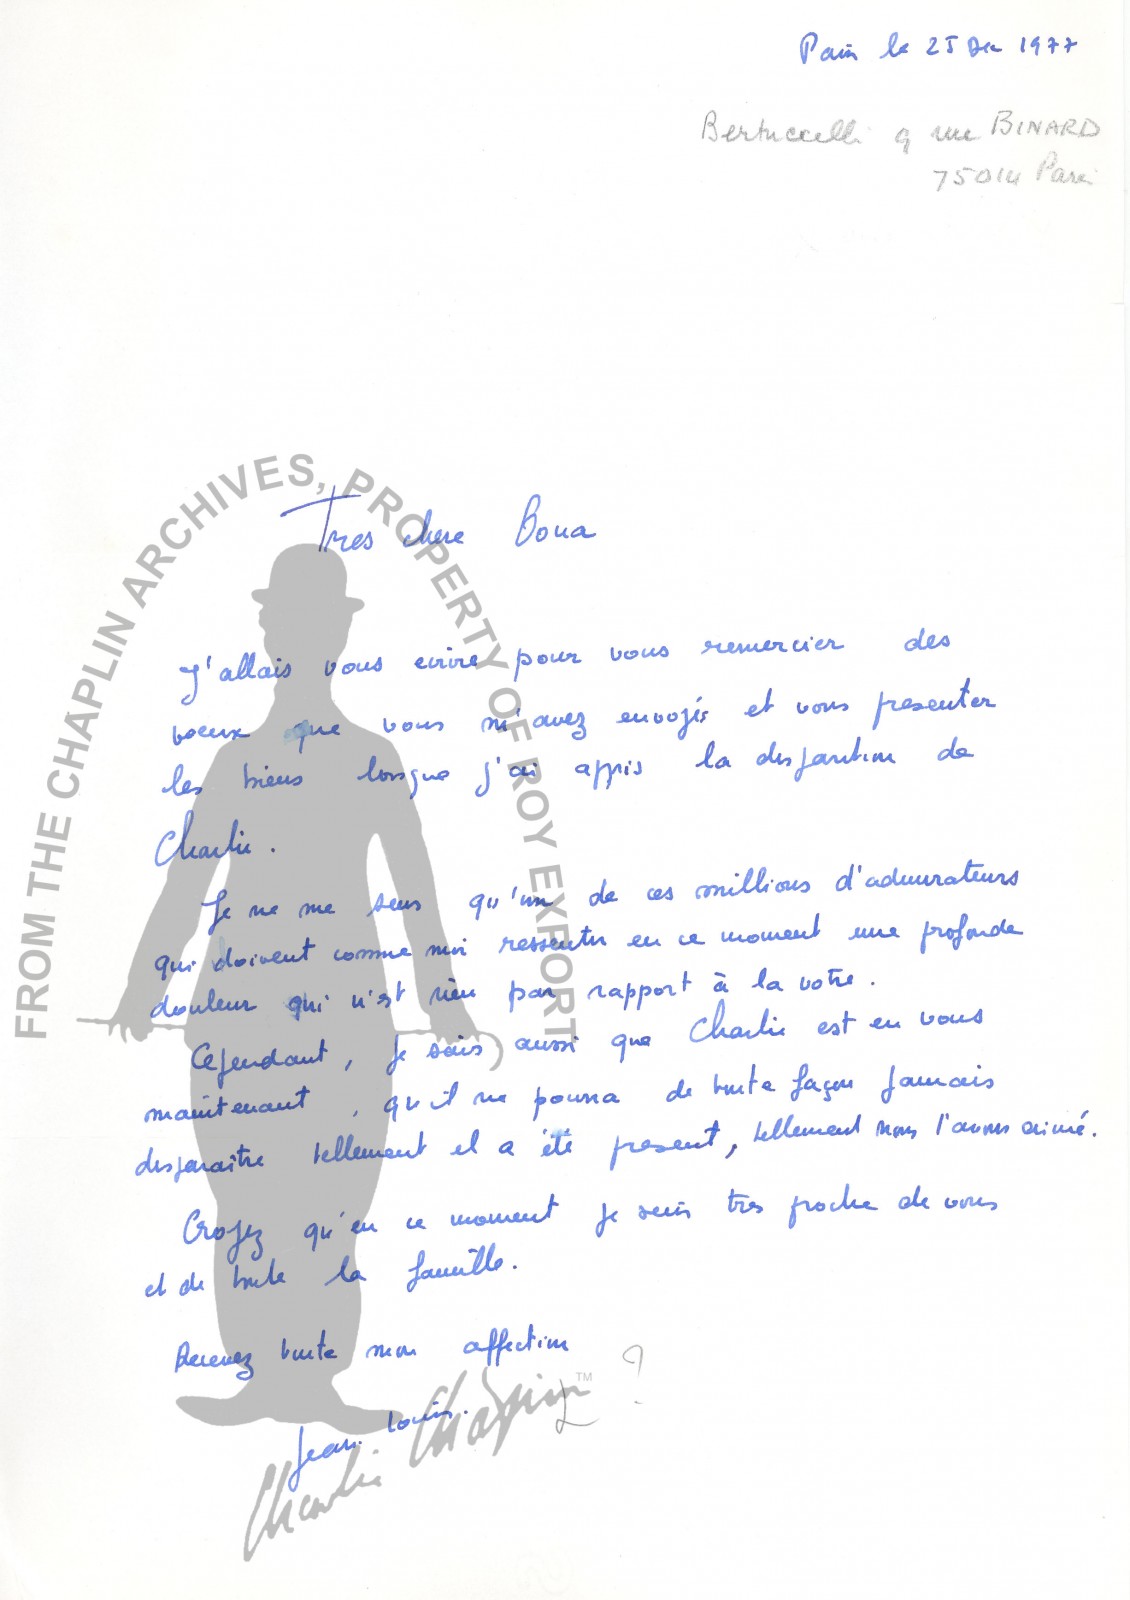 Paris le 25 Dec 1977
Bertuccelli 9 rue BINARD
75014 Paris
FROM THE CHAPLIN ARCHIVES, PROPERTY OF ROY EXPORT
Tres chere Bona
J'allais vous ecrire pour vous remercier des
voeux que vous m'avez envoyés et vous presenter
les miens lorsque j'ai appris la disparition de
Charlie.
Je ne me sens qu'un de ces millions d'admirateurs
qui doivent comme moi ressentir en ce moment une profonde
douleur qui n'est rien par rapport à la votre.
Cependant, je sais aussi que Charlie est en vous
maintenant, qu'il ne pourra de toute façon jamais
disparaître tellement il a été present, tellement nous l'avons aimé.
Croyez qu'en ce moment je suis tres proche de vous
et de toute la famille.
Recevez toute mon affection
Jean. Louis.
?
Charlie Chaplin TM